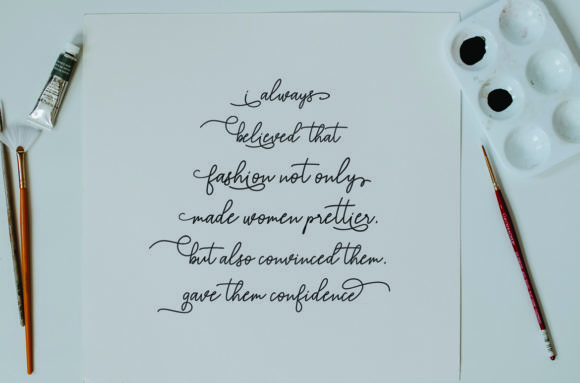 i always
believed that
fashion not only
made women prettier.
but also convinced them.
gave them confidence